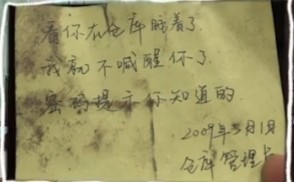 看你在仓库睡着了.
我就不喊醒你了.
密码提示你知道的.
2009年5月1日
仓库管理员